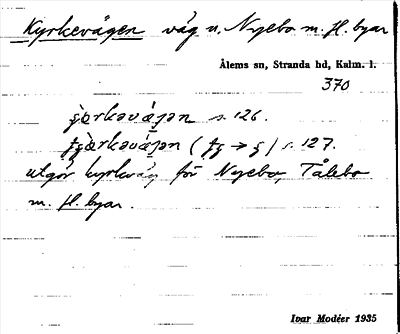 Kyrkevägen väg n. Nyebo m. fl. byar
Ålems sn, Stranda hd, Kalm. l.
370
s. 126.
s. 127.
utgör kyrkväg för Nyebo, Tålebo
m. fl. byar.
Ivar Modéer 1935